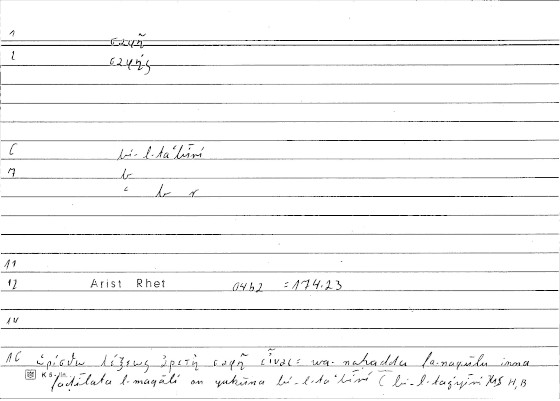 1 σαφῆ
2 σαφής
6 bi-l-taʿbīri
7 b
ʿ b r
11
12 Arist Rhet 04b2 =174.23
14
16 ὡρίσθω λέξεως ἀρετὴ σαφῆ εἶναι = wa-naḥaddu fa-naqūlu inna
faḍīlata l-maqāli an yakūna bi-l-taʿbīri ( bi-l-taġyīri MS H,B